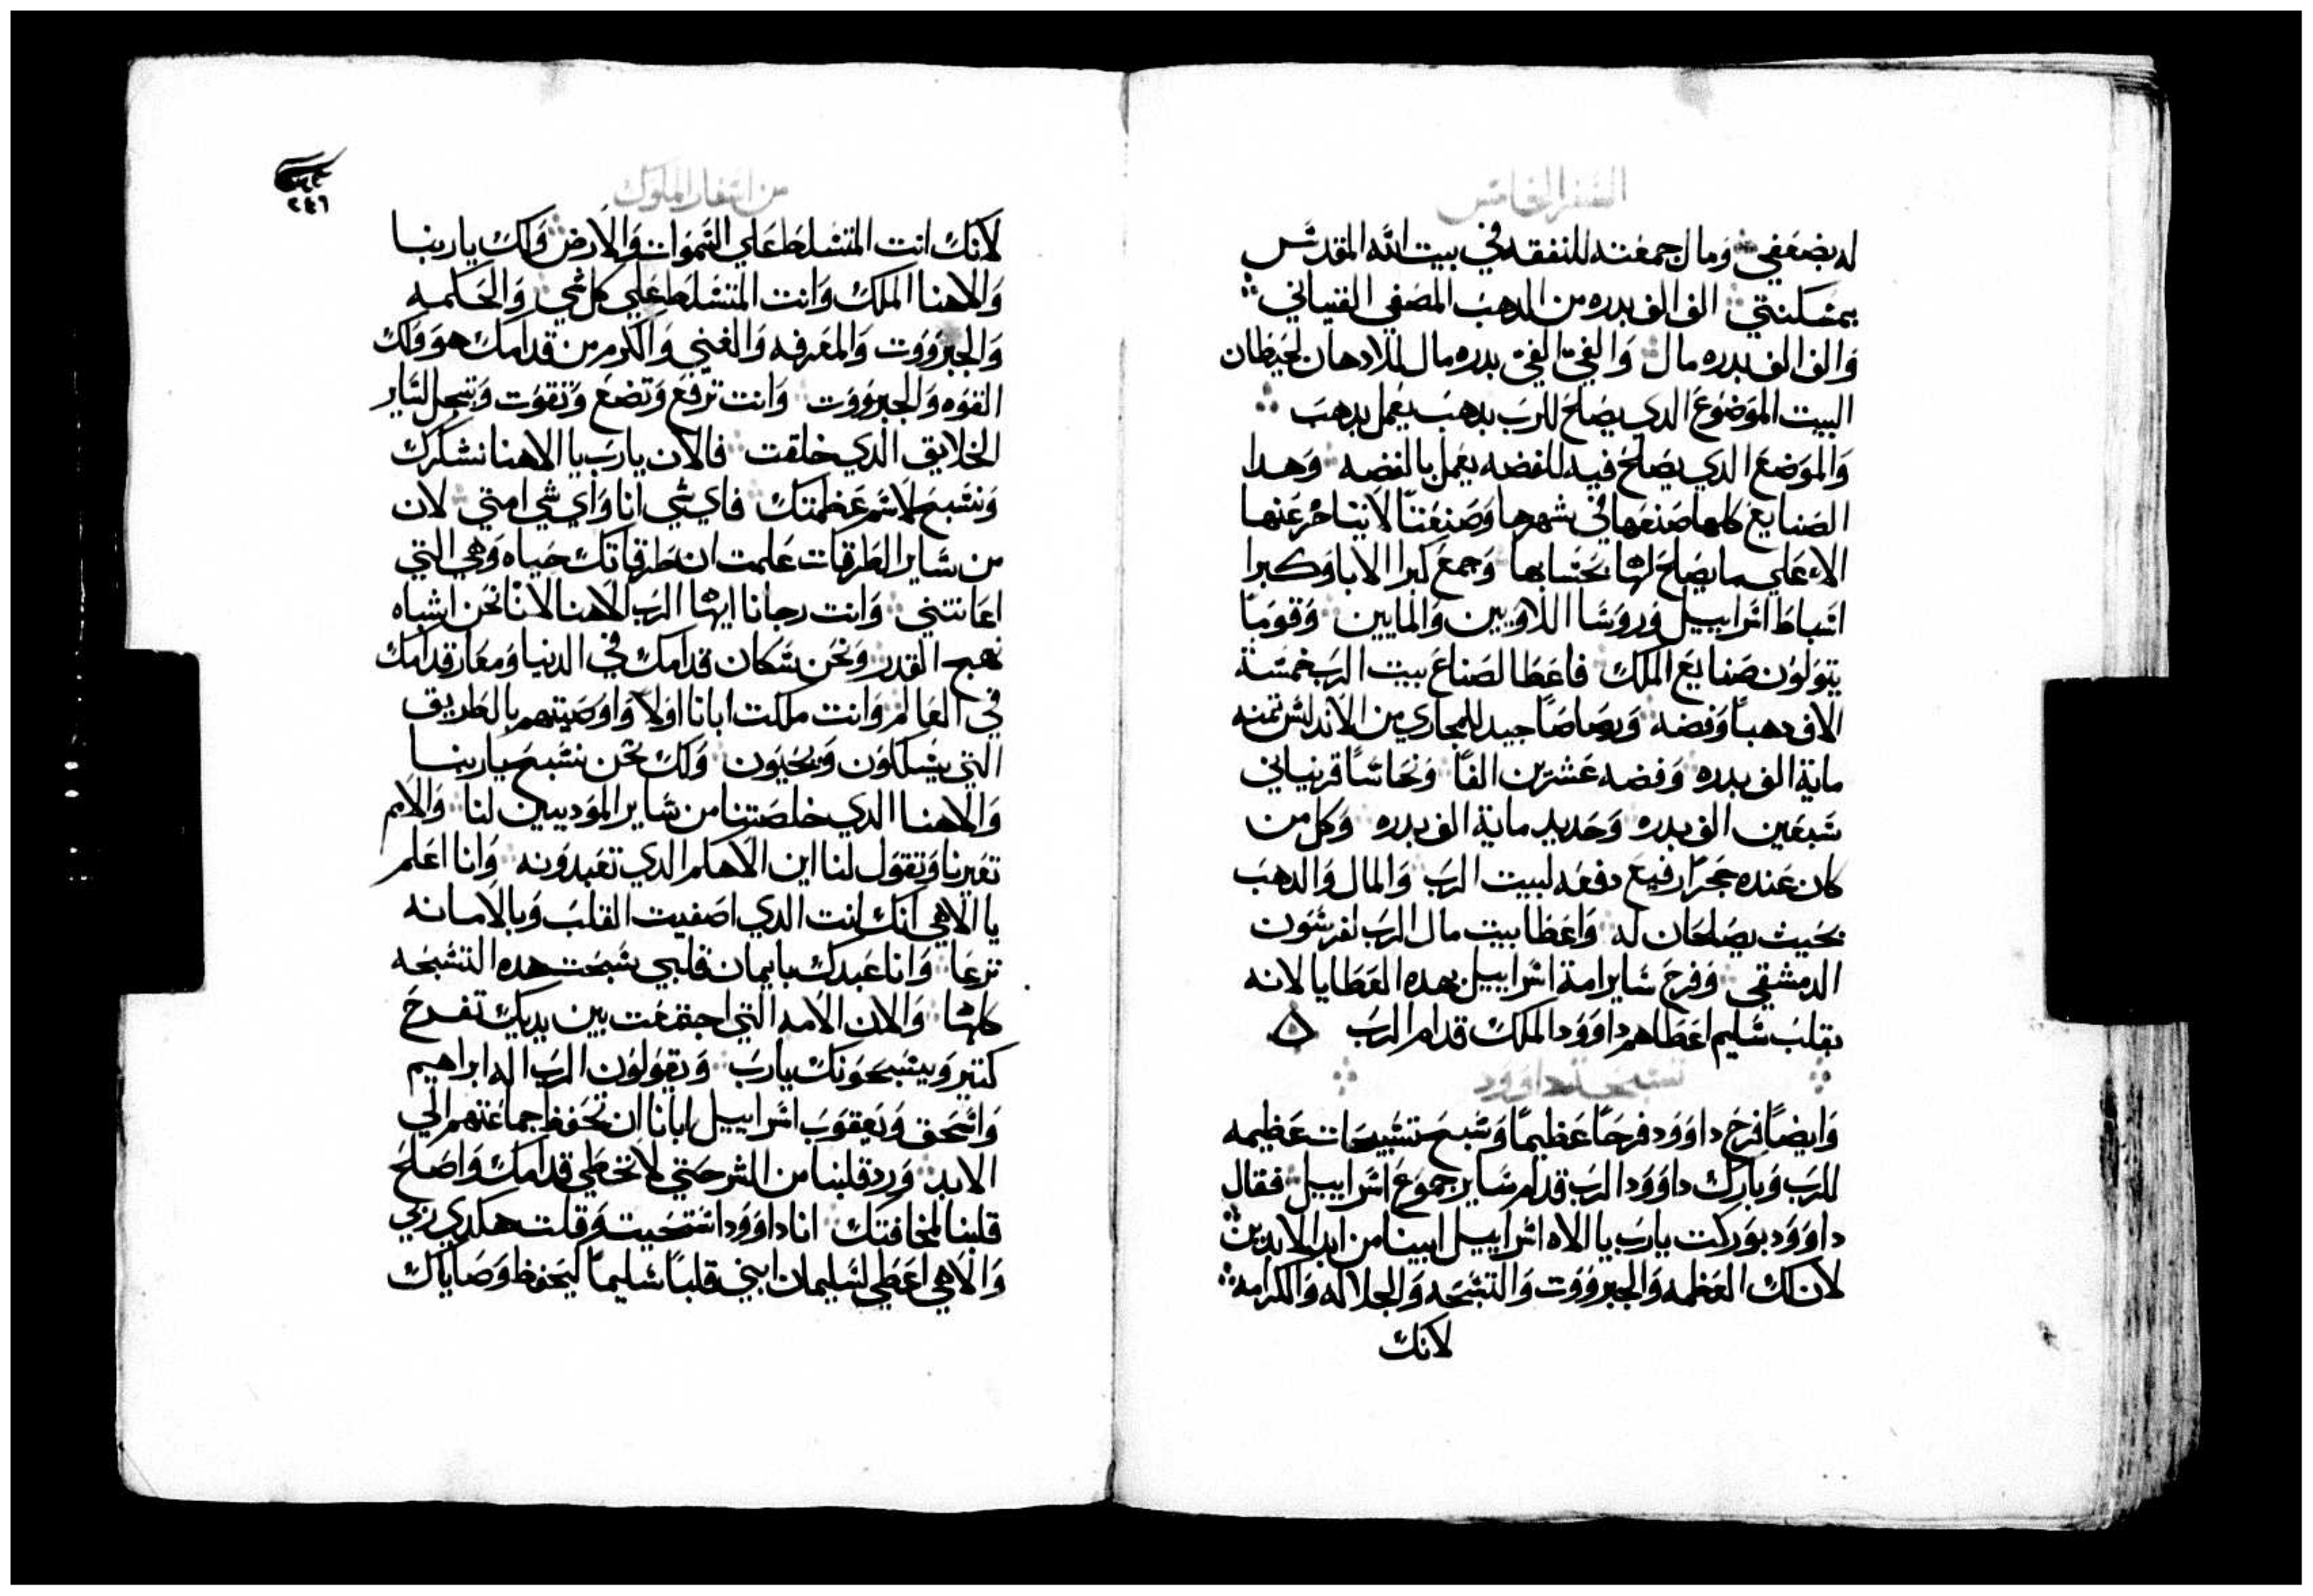 السفر الخامس
له بضعفي وما ل جمعته للنفقه في بيت الله المقدس
بمسكنتي الف الف بدره من الدهب المصفي الفنياني
والف الف بدره مال والفي الفي بدره مال للادهان لحيطان
البيت الموضوع الدي يصلح للرب بدهب يعمل بدهب
والموضع الدي يصلح فيه للفضه يعمل بالفضه وهدا
الصنايع كلها صنعها في شهرها وصنعتنا لا يتاخر عنها
الا علي ما يصلح لها بحسابها وجمع كبرا الابا وكبرا
اسباط اسراييل وروسا اللاويين والمايين وقوما
يتولون صنايع الملك فاعطا لصناع بيت الرب خمسة
الاف دهبا وفضه ورصاصا جيد للمجاري من الاندلس تمنه
ماية الف بدره وفضه عشرين الفا ونحاسا قرنياني
سبعين الف بدره وحديد ماية الف بدره وكل من
كان عنده حجرا رفيع دفعه لبيت الرب والمال والدهب
بحيث يصلحان له واعطا بيت مال الرب لفرسون
الدمشقي وفرح ساير امة اسراييل بهده العطايا لانه
بقلب سليم اعطاهم داوود الملك قدام الرب
تسبحة داوود
وايضا فرح داوود فرحا عظيما وسبح تسبيحات عظيمه
للرب وبارك داوود الرب قدام ساير جموع اسراييل فقال
داوود بوركت يارب يا الاه اسراييل ابينا من ابد الابدين
لان لك العظمه والجبرووت والتسبحه والجلاله والكرامه
لانك
من اسفار الملوك
٢٤٦
لانك انت المتسلط علي السموات والارض ولك ياربنا
والاهنا الملك وانت المتسلط علي كل شي والحكمه
والجبرووت والمعرفه والغني والكرم من قدامك هو ولك
القوه والجبرووت وانت ترفع وتضع وتقوت وتبجل لساير
الخلايق الدي خلقت فالان يارب يا الاهنا نشكرك
ونسبح لاسم عظمتك فاي شي انا واي شي امتي لان
من ساير الطرقات علمت ان طرقاتك حياه وهي التي
اعانتني وانت رجانا ايها الرب الاهنا لاننا نحن اشباه
نهيج القدر ونحن سكان قدامك في الدنيا ومعار قدامك
في العالم وانت ملكت ابانا اولا واوصيتهم بالطريق
التي يسلكون ويحيون ولك نحن نسبح ياربنا
والاهنا الدي خلصتنا من ساير المودييين لنا والامم
تعيرنا وتقول لنا اين الاهكم الدي تعبدونه وانا اعلم
يا الاهي انك انت الدي اصفيت القلب وبالامانه
ترعا وانا عبدك بايمان قلبي سبحت هده التسبحه
كلها والان الامه التي اجتمعت بين يديك تفرح
كتير ويسبحونك يارب ويقولون الرب اله ابراهيم
واسحق ويعقوب اسراييل ابانا ان تحفظ جماعتهم الي
الابد ورد قلبنا من الشر حتي لا نخطي قدامك واصلح
قلبنا لمخافتك انا داوود استحيت وقلت هكدي ربي
والاهي اعطي لسليمان ابني قلبا سليما ليحفظ وصاياك